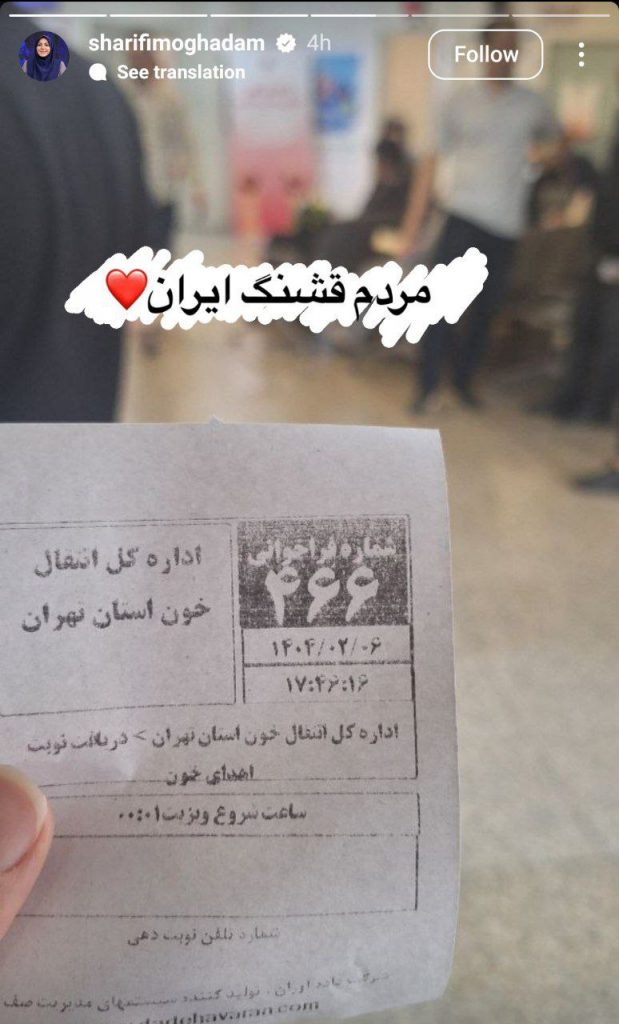 sharifimoghadam 4h
Follow
See translation
مردم قشنگ ایران❤️
شماره فراخوانی
۴۶۶
اداره کل انتقال
خون استان تهران
۱۴۰۴/۰۲/۰۶
۱۷:۴۶:۱۶
اداره کل انتقال خون استان تهران > دریافت نوبت
اهدای خون
ساعت شروع ویزیت ۰۰:۰۱
شماره تلفن نوبت دهی
شرکت داده آوران ، تولید کننده سیستمهای مدیریت صف
dadehavaran.com